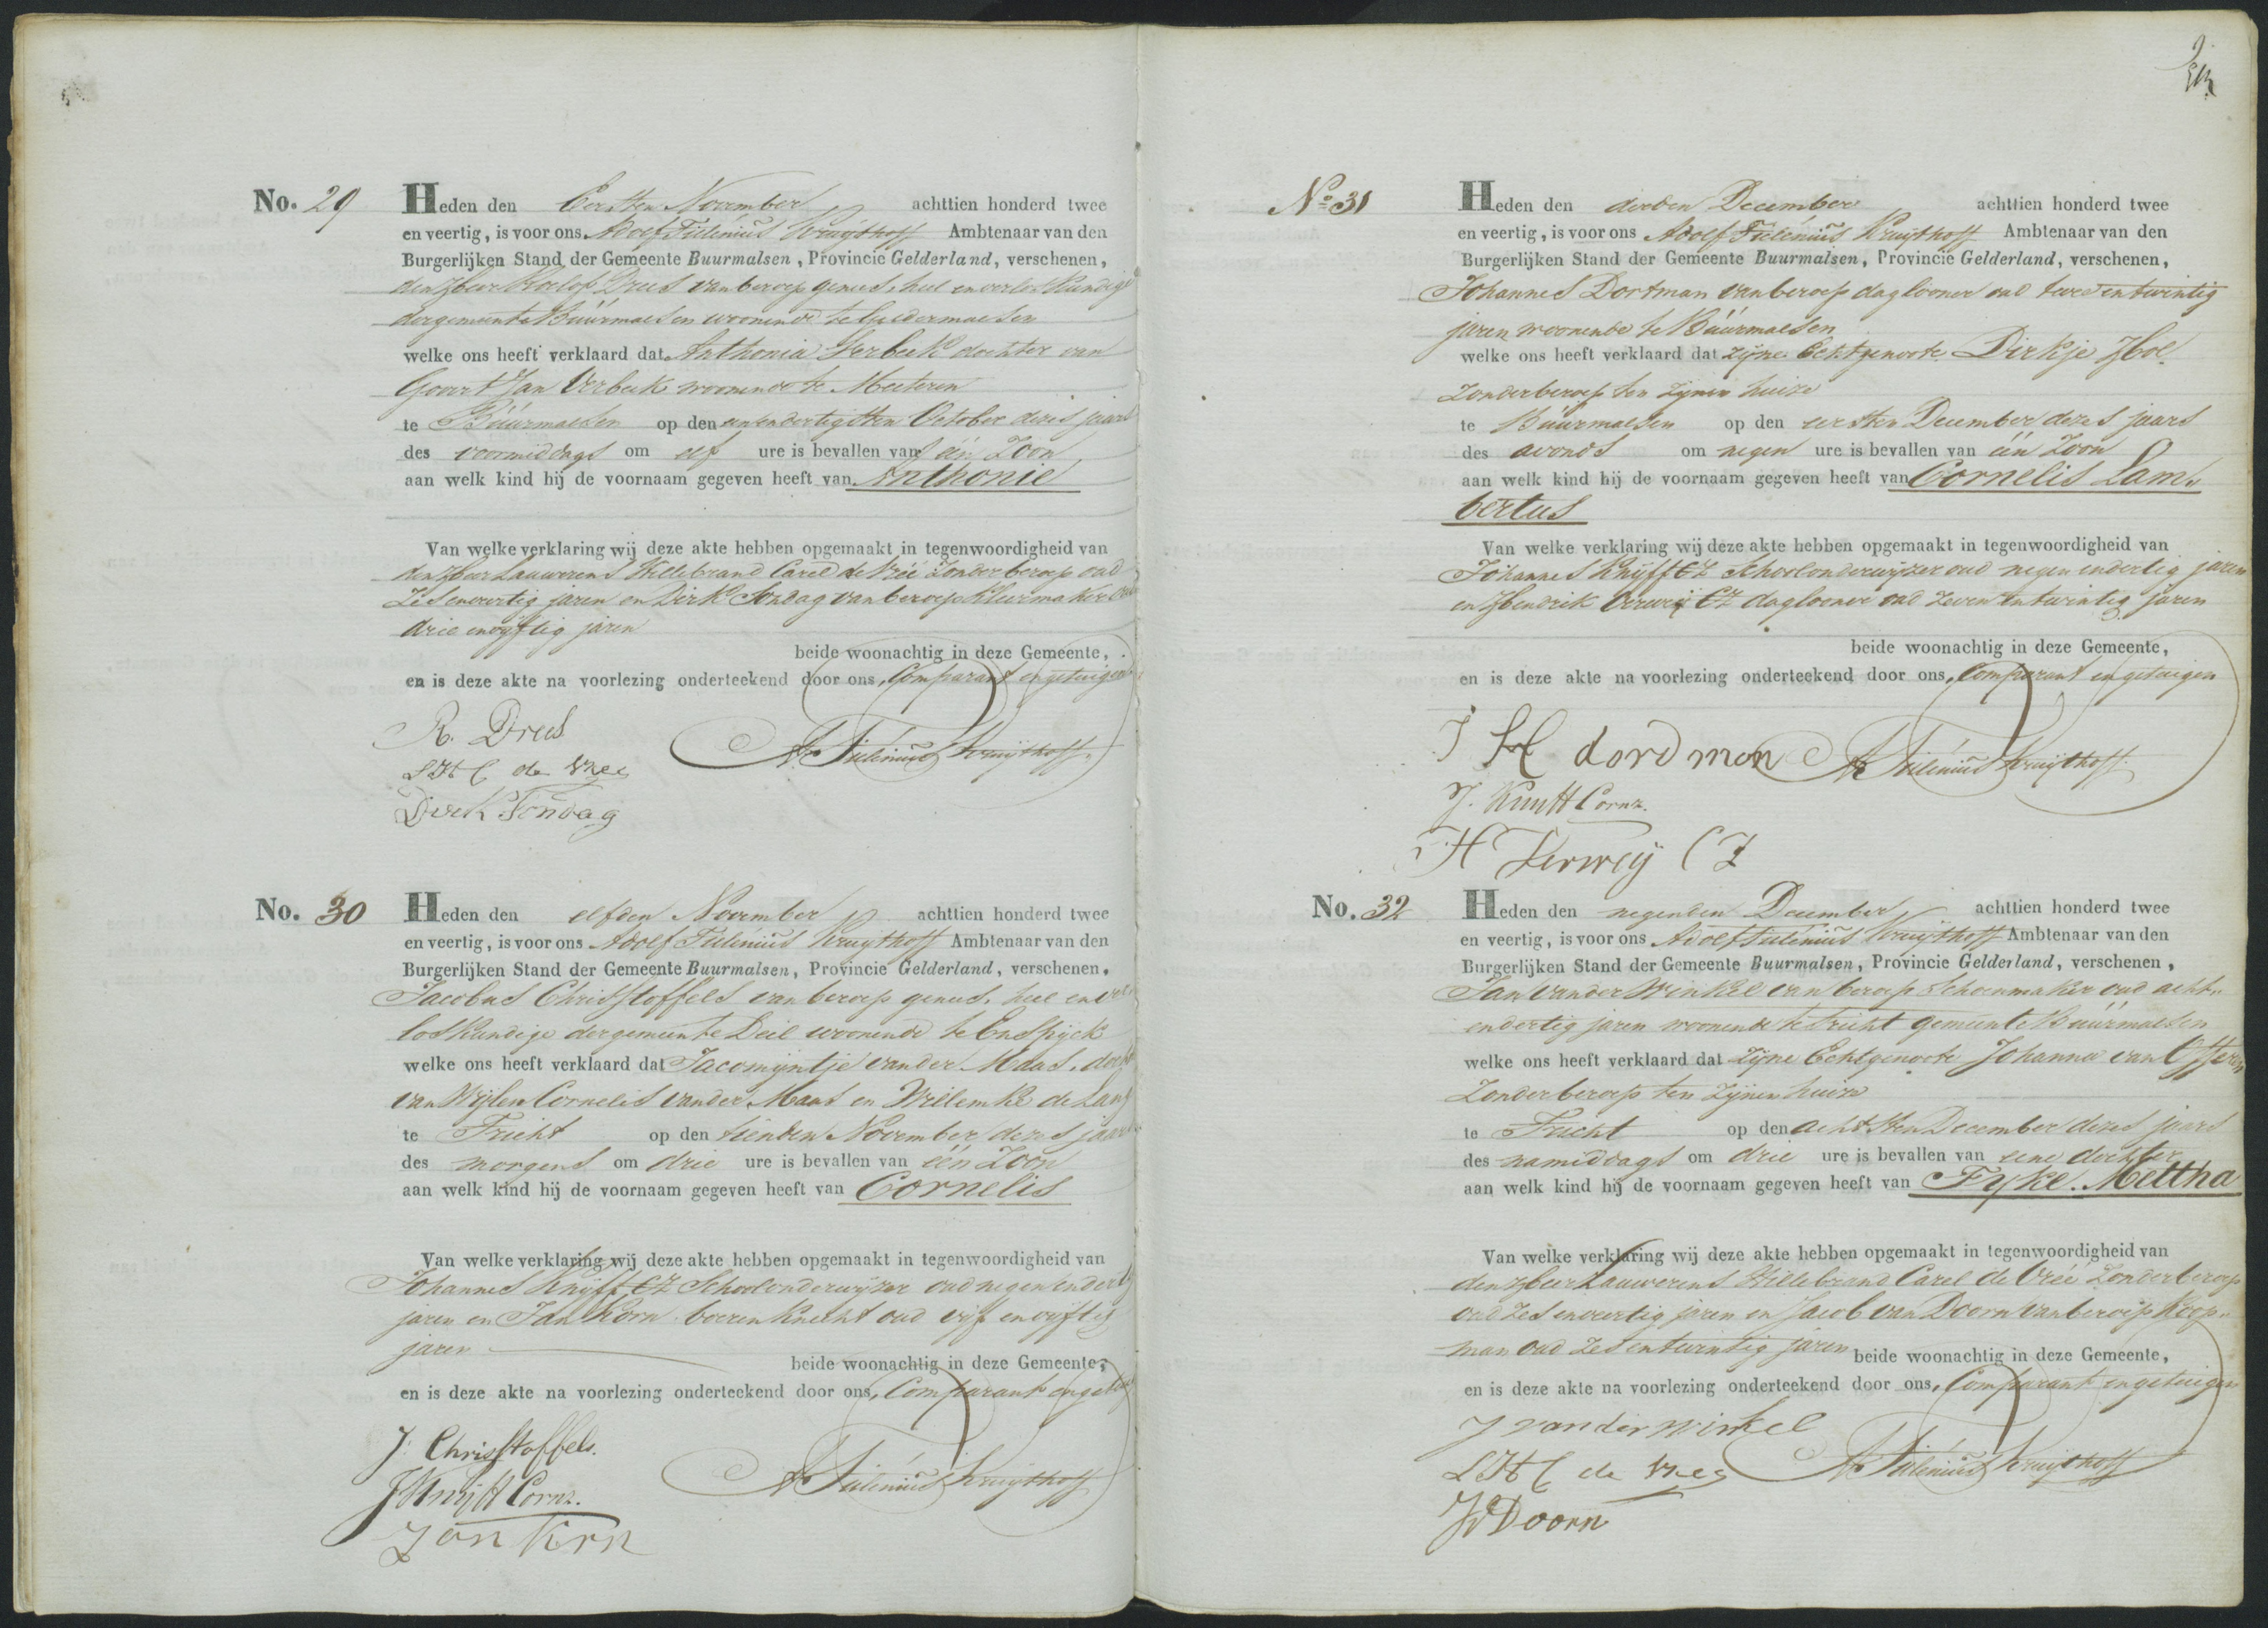 No. 29 Heden den Eersten November achttien honderd twee
en veertig, is voor ons Adolf Tulenius Kruijthoff Ambtenaar van den
Burgerlijken Stand der Gemeente Buurmalsen, Provincie Gelderland, verschenen,
den Heer Roelof Drees van beroep genees, heel en verloskundige
der gemeente Buurmalsen woonende te Geldermalsen
welke ons heeft verklaard dat Anthonia Verbeek dochter van
Govert Jan Verbeek woonende te Meeteren
te Buurmalsen op den eenendertigsten October dezes jaars
des voormiddags om elf ure is bevallen van één Zoon
aan welk kind hij de voornaam gegeven heeft van Anthonie
Van welke verklaring wij deze akte hebben opgemaakt in tegenwoordigheid van
den Heer Lauwerens Hillebrand Carel de Vrée zonder beroep oud
Zesenveertig jaren en Dirk Sondag van beroep kleermaker oud
drie envijftig jaren
beide woonachtig in deze Gemeente,
en is deze akte na voorlezing onderteekend door ons, Comparant en getuigen
R. Drees
LHC de Vree A Tulenius Kruijthoff
Dirk Sondag
No. 30 Heden den elfden November achttien honderd twee
en veertig, is voor ons Adolf Tulenius Kruijthoff Ambtenaar van den
Burgerlijken Stand der Gemeente Buurmalsen, Provincie Gelderland, verschenen,
Jacobus Christoffels van beroep genees, heel en ver
loskundige der gemeente Deil woonende te Enspijck
welke ons heeft verklaard dat Jacomijntje van der Maas, docht
van Wijlen Cornelis van der Maas en Willemke de Lang
te Tricht op den tienden November dezes jaars
des morgens om drie ure is bevallen van één Zoon
aan welk kind hij de voornaam gegeven heeft van Cornelis
Van welke verklaring wij deze akte hebben opgemaakt in tegenwoordigheid van
Johannes Knijff CZ Schoolonderwijzer oud negenendertig
jaren en Jan Korn boerenknecht oud vijf envijftig
jaren
beide woonachtig in deze Gemeente,
en is deze akte na voorlezing onderteekend door ons, Comparant en getuigen
J. Christoffels.
J Knijff Cornz. A Tulenius Kruijthoff
Jan Krn
No 31 Heden den derden December achttien honderd twee
en veertig, is voor ons Adolf Tulenius Kruijthoff Ambtenaar van den
Burgerlijken Stand der Gemeente Buurmalsen, Provincie Gelderland, verschenen,
Johannes Dortman van beroep daglooner oud twee entwintig
jaren woonende te Buurmalsen
welke ons heeft verklaard dat zijne Echtgenoote Dirkje Hol
Zonder beroep ten zijnen huize
te Buurmalsen op den eersten December dezes jaars
des avonds om negen ure is bevallen van één Zoon
aan welk kind hij de voornaam gegeven heeft van Cornelis Lam
bertus
Van welke verklaring wij deze akte hebben opgemaakt in tegenwoordigheid van
Johannes Knijff CZ Schoolonderwijzer oud negen endertig jaren
en Hendrik Verweij CZ daglooner oud Zeven entwintig jaren
beide woonachtig in deze Gemeente,
en is deze akte na voorlezing onderteekend door ons, Comparant en getuigen
dordman A Tulenius Kruijthoff
J. Knijff Cornz.
H Verweij CZ
No. 32 Heden den negenden December achttien honderd twee
en veertig, is voor ons Adolf Tulenius Kruijthoff Ambtenaar van den
Burgerlijken Stand der Gemeente Buurmalsen, Provincie Gelderland, verschenen,
Jan van der Winkel van beroep Schoenmaker oud acht
endertig jaren woonende te Tricht gemeente Buurmalsen
welke ons heeft verklaard dat zijne Echtgenoote Johanna van Osseren
Zonder beroep ten zijnen huize
te Tricht op den achtsten December dezes jaars
des namiddags om drie ure is bevallen van eene dochter
aan welk kind hij de voornaam gegeven heeft van Fyke Mettha
Van welke verklaring wij deze akte hebben opgemaakt in tegenwoordigheid van
den Heer Lauwerens Hillebrand Carel de Vrée Zonder beroep
oud Zes enveertig jaren en Jacob van Doorn van beroep koop
man oud Zes entwintig jaren beide woonachtig in deze Gemeente,
en is deze akte na voorlezing onderteekend door ons, Comparant en getuigen
J van der Winkel
LHC de Vree A Tulenius Kruijthoff
JV Doorn